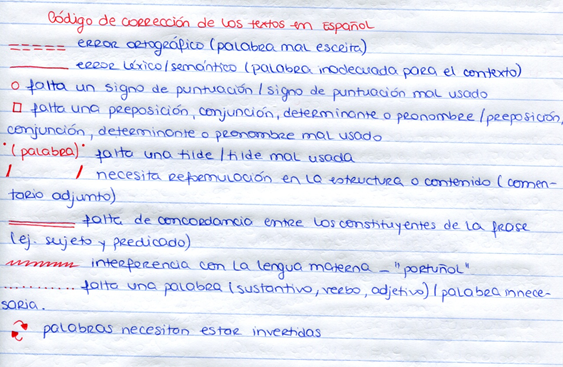 Código de corrección de los textos en Español
error ortográfico (palabra mal escrita)
error léxico/semántico (palabra inadecuada para el contexto)
falta un signo de puntuación / signo de puntuación mal usado
falta una preposición, conjunción, determinante o pronombre / preposición,
conjunción, determinante o pronombre mal usado
*(palabra)* falta una tilde / tilde mal usada
/ / necesita reformulación en la estructura o contenido (comen-
tario adjunto)
falta de concordancia entre los constituyentes de la frase
(ej. sujeto y predicado)
interferencia con la lengua materna - "portuñol"
falta una palabra (sustantivo, verbo, adjetivo) / palabra innece-
saria.
palabras necesitan estar invertidas